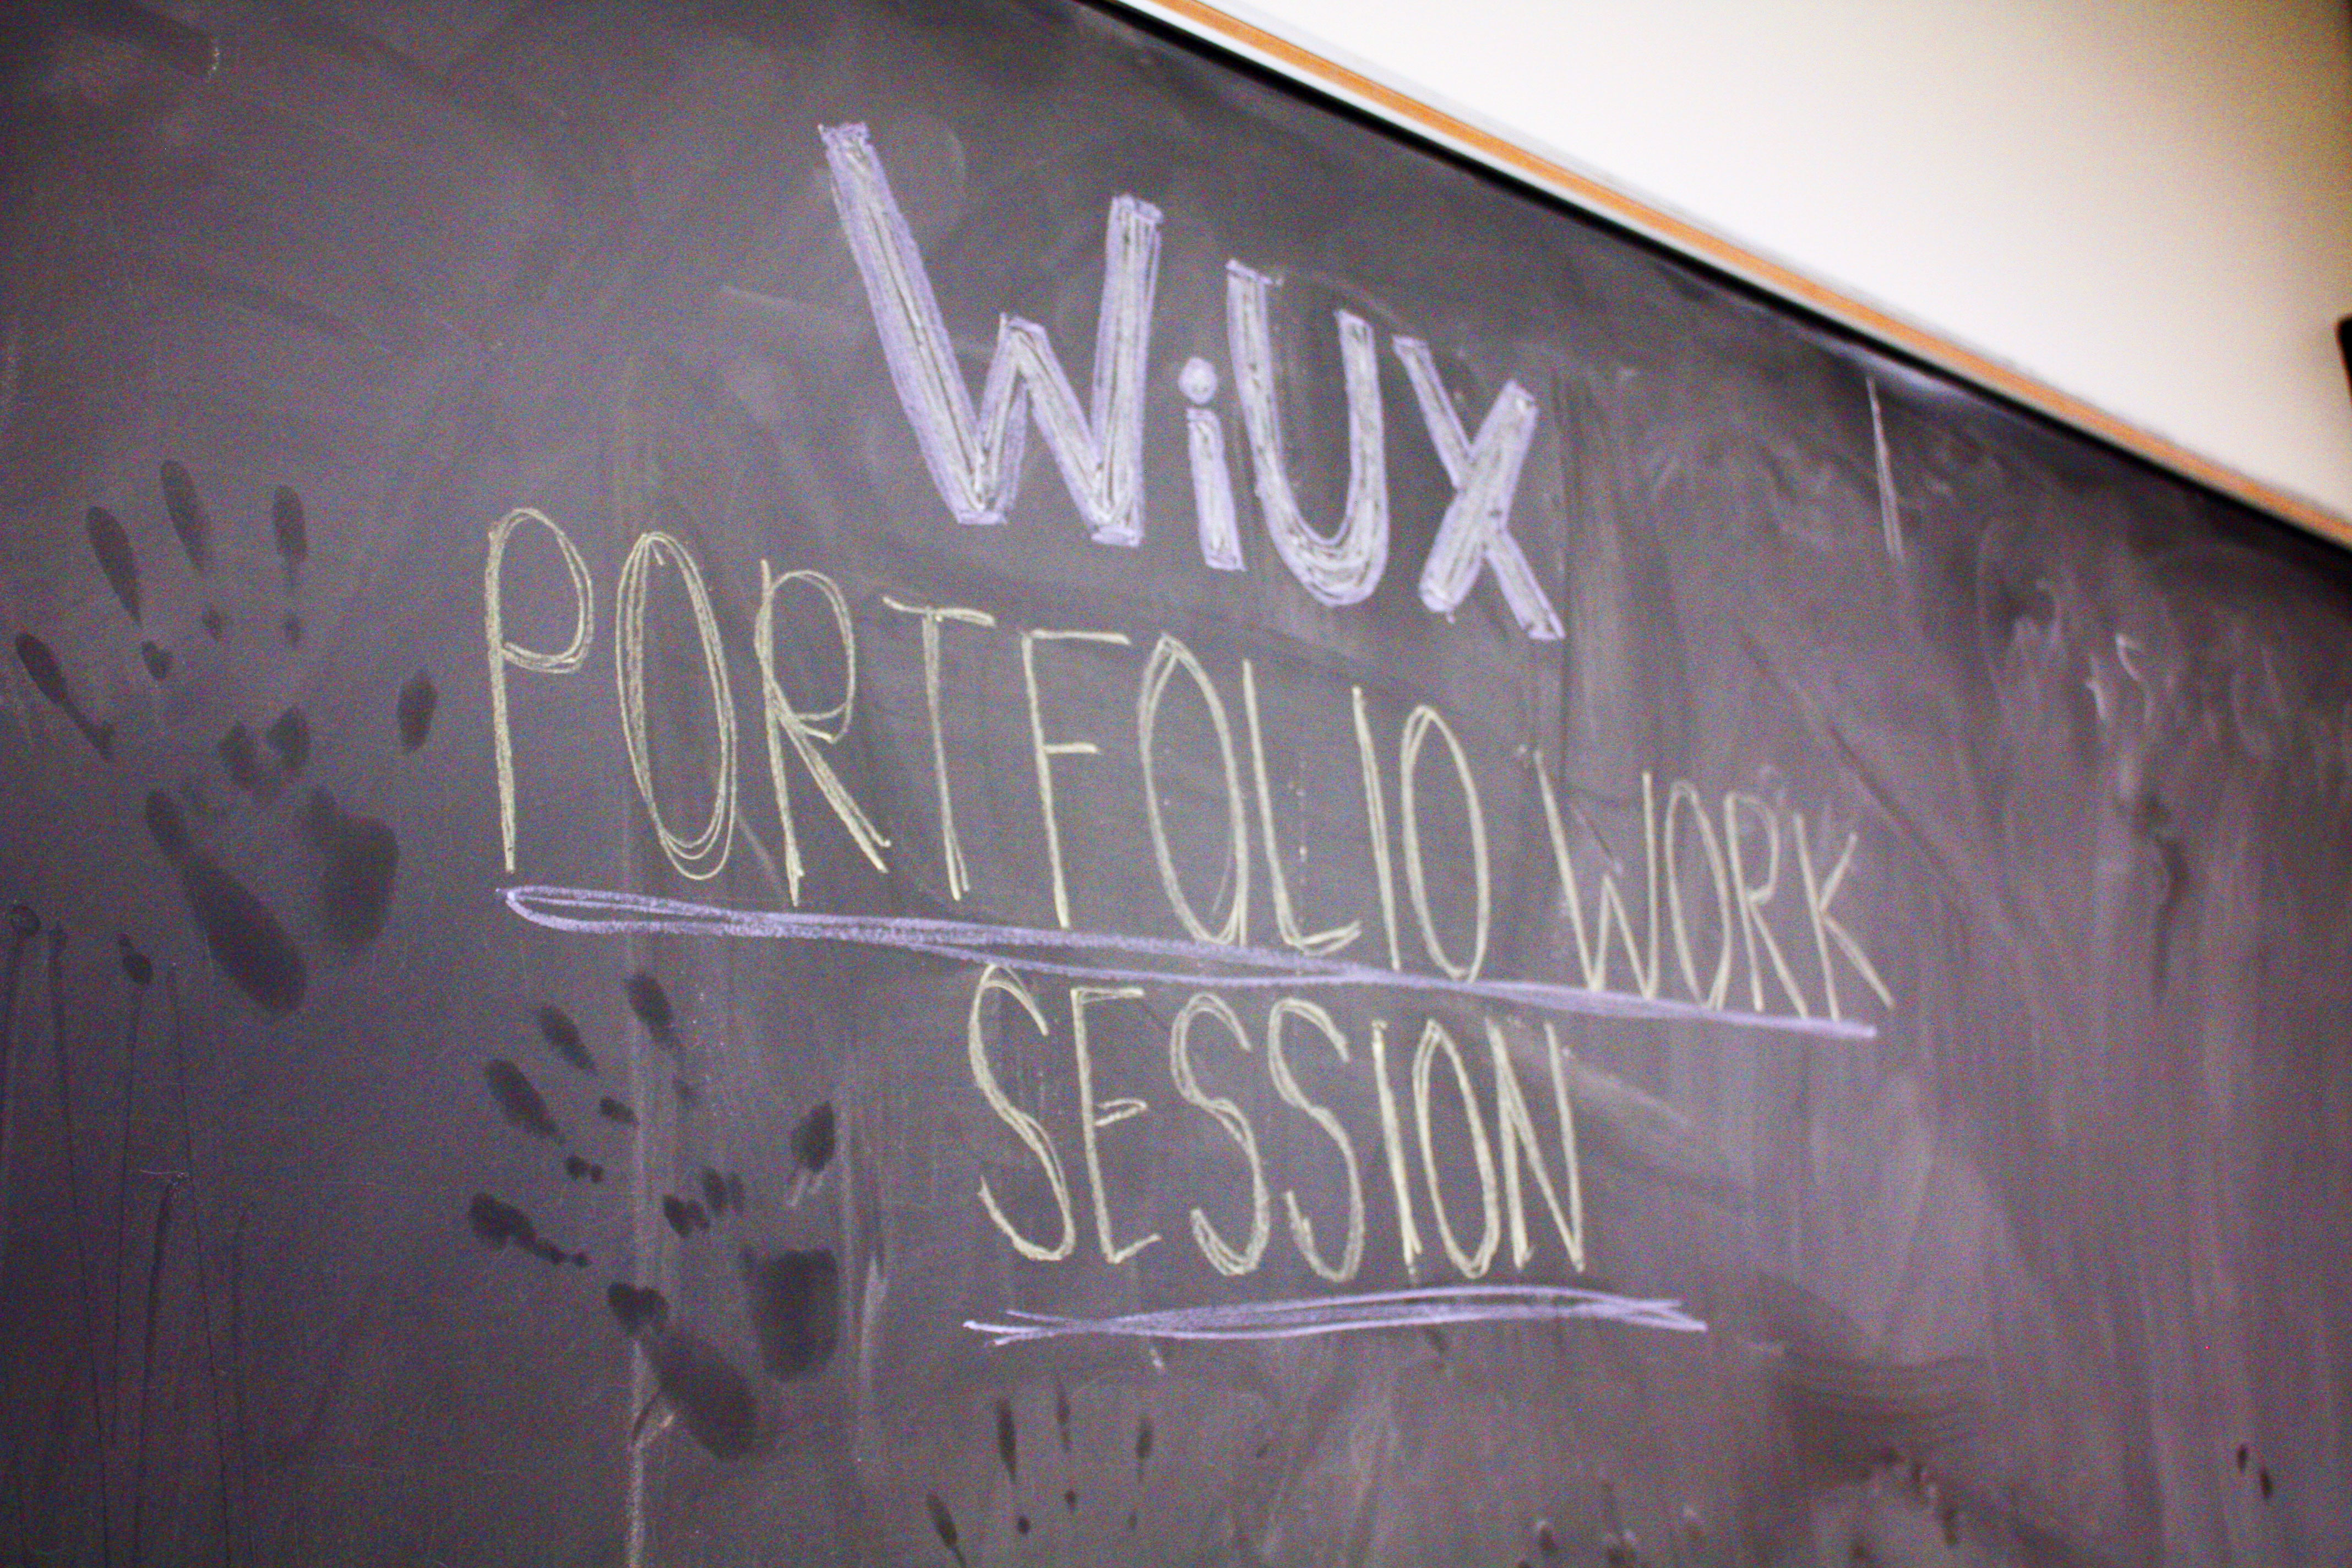 WiUX
PORTFOLIO WORK
SESSION